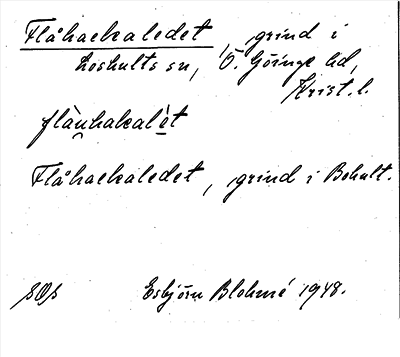 Flåhackaledet, grind i
Loshults sn, Ö. Göinge hd,
Krist. l.
flàu̯hakalè̱t
Flåhackaledet, grind i Bohult.
SOs Esbjörn Blohmé 1948.